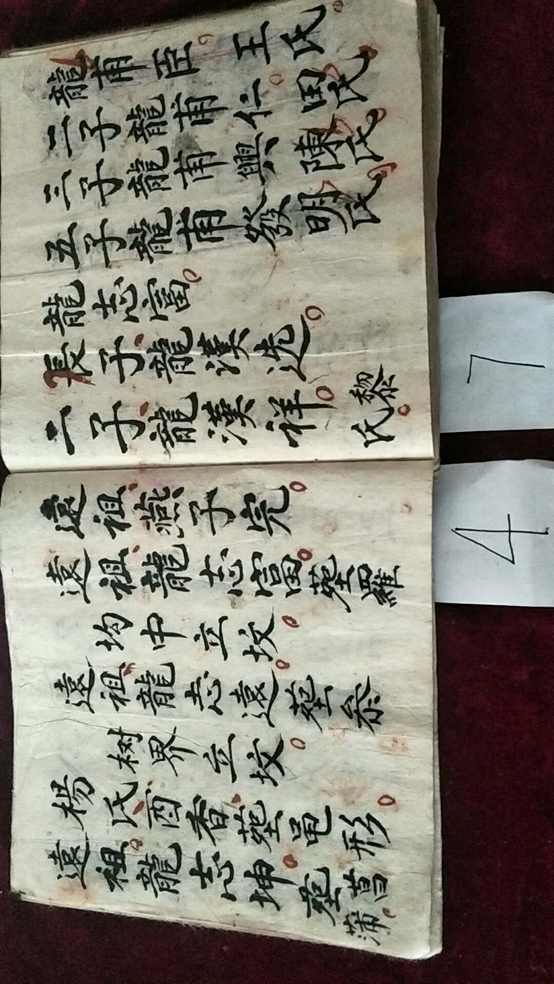 龍甫臣 王氏
二子龍甫仁 田氏
三子龍甫興 陳氏
五子龍甫發 明氏
龍志富
長子龍漢选
二子龍漢祥 黎氏
遠祖燕子完
遠祖龍志富塟羅
均中立坟
遠祖龍志遠塟
树界立坟
楊氏酉香塟黾形
遠祖龍志坤塟菖蒲
7
4